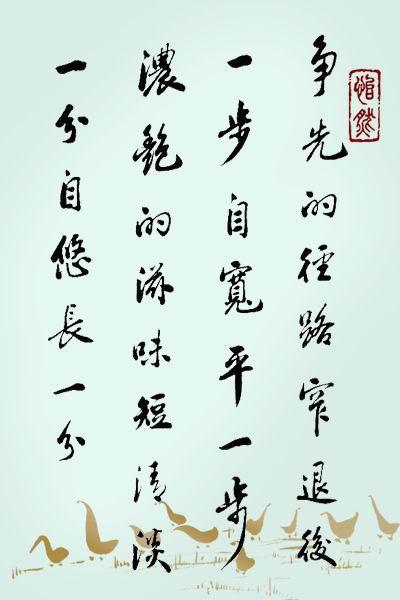 争先的径路窄退後
一步自寬平一步
濃艷的滋味短清淡
一分自悠長一分